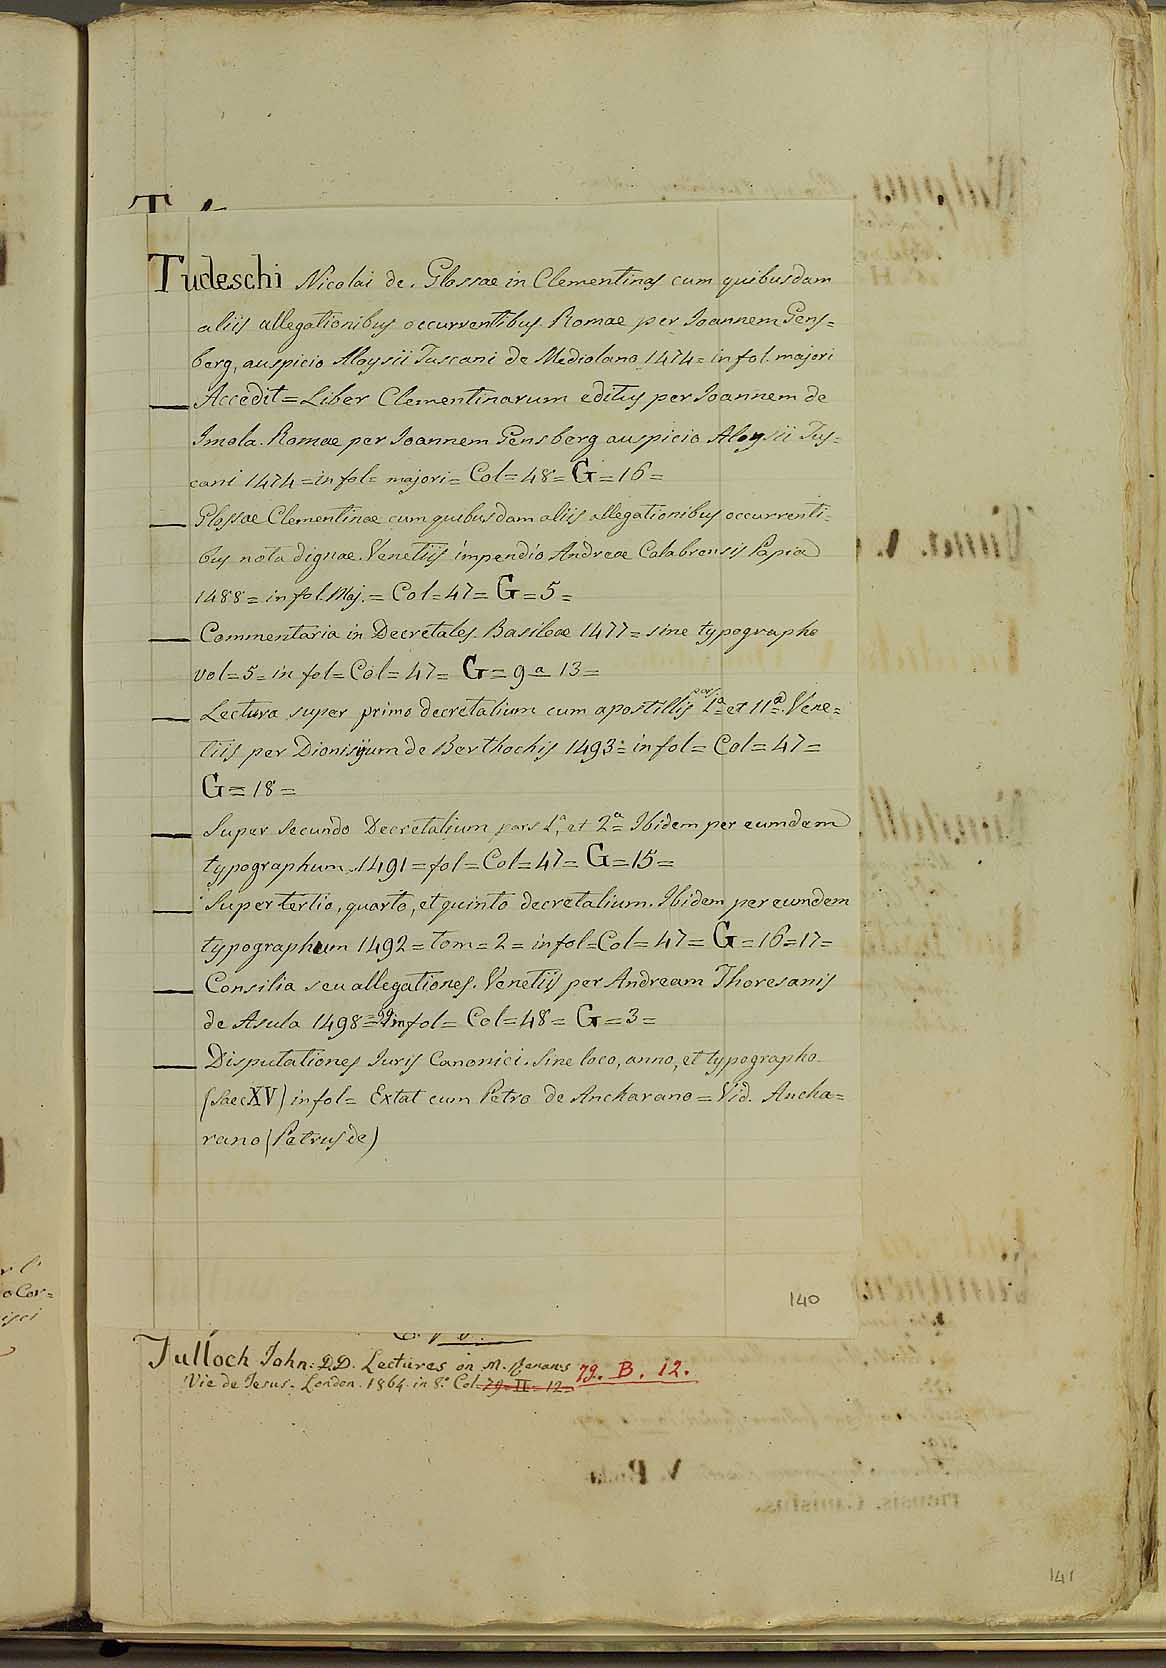 Tudeschi Nicolai de. Glossae in Clementinas cum quibusdam
aliis allegationibus occurrentibus. Romae per Ioannem Gens=
berg, auspicio Aloysii Tuscani de Mediolano 1474= in fol. majori
— Accedit= Liber Clementinarum editus per Ioannem de
Imola. Romae per Ioannem Gensberg auspicio Aloysii Tus=
cani 1474= in fol= majori= Col= 48= G= 16=
— Glossae Clementinae cum quibusdam aliis allegationibus occurrenti=
bus nota dignae. Venetiis impendio Andreae Calabrensis Papia
1488= in fol. Maj.= Col= 47= G= 5=
— Commentaria in Decretales. Basileae 1477= sine typographo
vol= 5= in fol= Col= 47= G= 9 a 13=
— Lectura super primo decretalium cum apostillis pars 1ª et IIª. Vene=
tiis per Dionisyum de Berthochis 1493= in fol= Col= 47=
G= 18=
— Super secundo Decretalium pars 1ª et 2ª= Ibidem per eumdem
typographum 1491= fol= Col= 47= G= 15=
— Super tertio, quarto, et quinto decretalium. Ibidem per eumdem
typographum 1492= tom= 2= in fol= Col= 47= G= 16= 17=
— Consilia seu allegationes. Venetiis per Andream Thoresanis
de Asula 1498= in fol= Col= 48= G= 3=
— Disputationes Iuris Canonici. Sine loco, anno, et typographo
(Saec XV) in fol= Extat cum Petro de Ancharano= Vid. Ancha=
rano (Petrus de)
140
Tulloch John. D.D. Lectures on M. Renan's
Vie de Jesus. London. 1864. in 8.° Col. 79. II. 12= 79. B. 12.
141